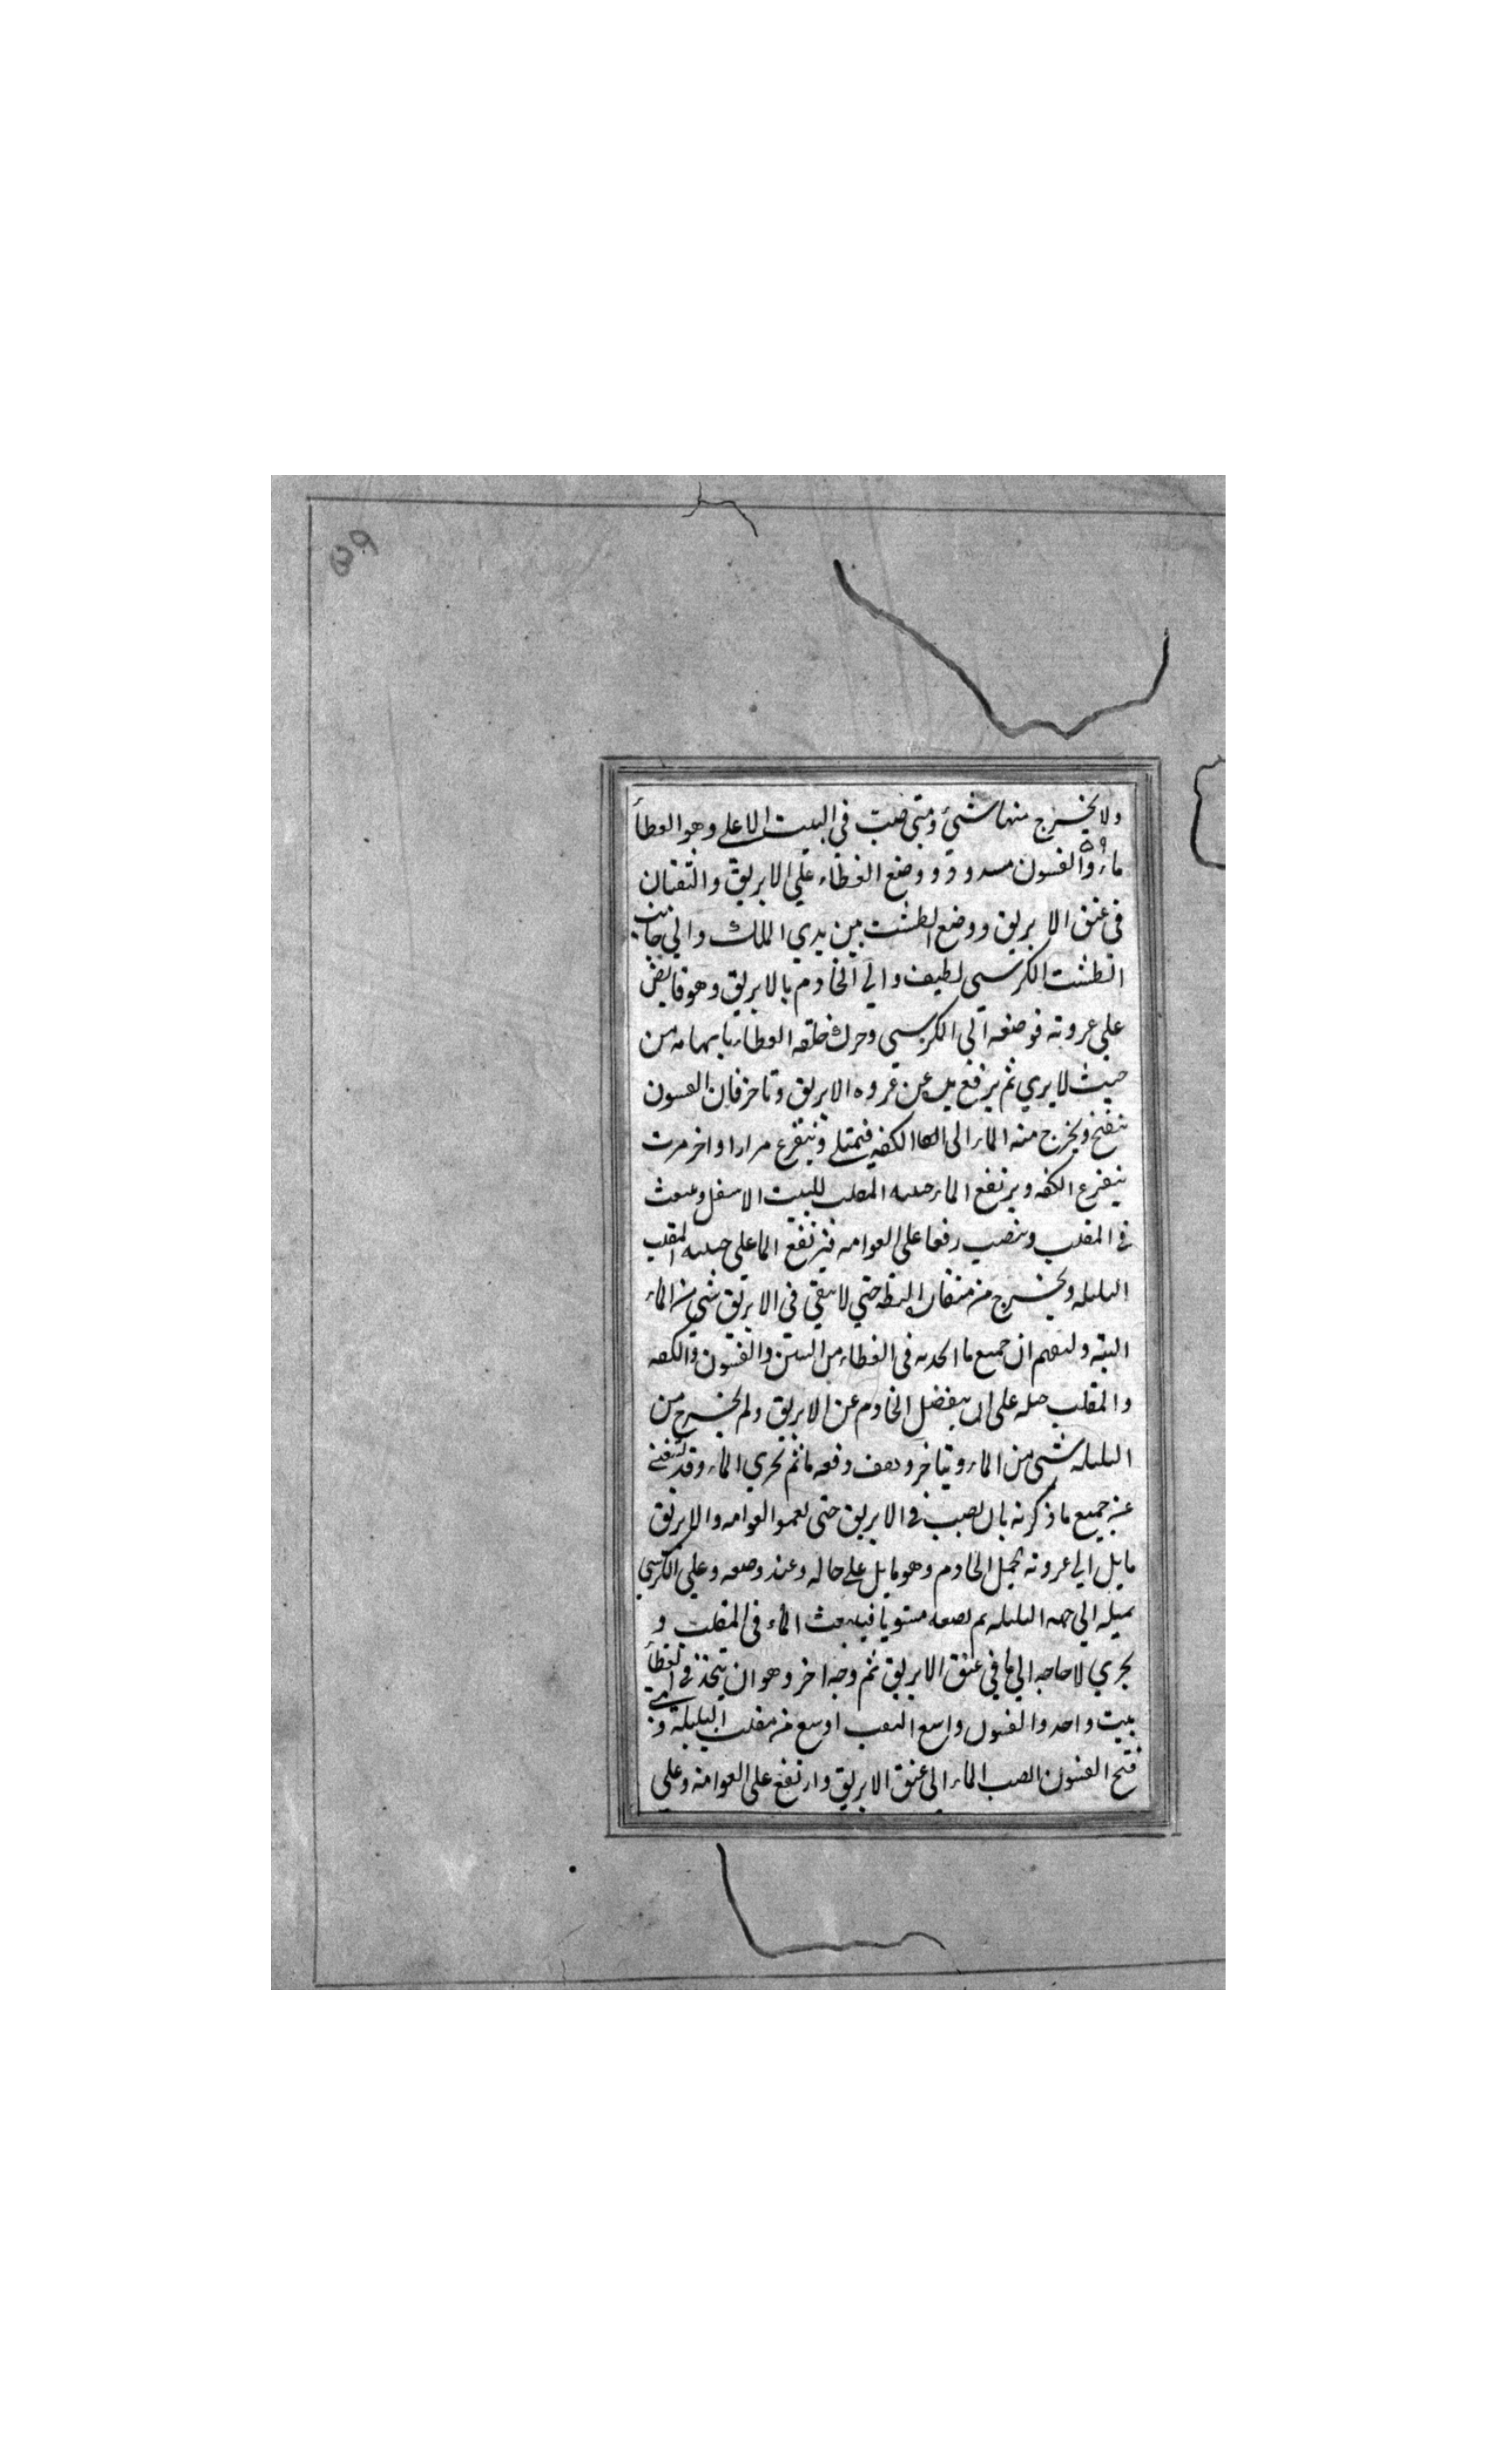 ولا يخرج منها شيئ ومتى صبت في البيت الاعلى وهو الغطأ
ماء والفسون مسدود ووضع الغطاء على الابريق والثقبان
في عنق الابريق ووضع الطشت بين يدي الملك والي جانب
الطشت الكرسي لطيف والي الخادم بالابريق وهو قابض
على عروته فوضعه الى الكرسي وحرك حلقه العطاء بابهامه من
حيث لا يري ثم يرفع يده عن عروه الابريق وتاخر فان الفسون
ينفتح ويخرج منه الماء الى الكفه فتمتلي وتتفرغ مرارا واخر مرت
يتفرع الكفه ويرتفع الماء المقلب للبيت الاسفل
في المقلب وينصب دفعا على العوامه فيرتفع الما على المقلب
البلبله ويخرج من منقار البطه حتي لا يبقي في الابريق شي من الماء
البته وليفهم ان جميع ما اتخذته في الغطاء من البيتين والفسون والكفه
والمقلب حيله على ان ينفصل الخادم عن الابريق ولم يخرج من
البلبله شي من الماء ويتاخر ويقف دفعه ما ثم يجري الماء وقد يستغنى
عن جميع ما ذكرته بان يصب في الابريق حتى يعموا العوامه والابريق
مايل الي عروته يحمل الخادم وهو مايل على حاله وعند وضعه وعلي الكرسي
يميله الي جهه البلبله ثم يضعه مستويا فينبعث الماء في المقلب و
يجري لا حاجه الي ما في عنق الابريق ثم وجه اخر وهو ان يتخذ في الغطأ
بيت واحد والفسون واسع الثقب اوسع من مقلب البلبلة ومتى
فتح الفسون انصب الماء الي عنق الابريق وارتفع على العوامه وعلي